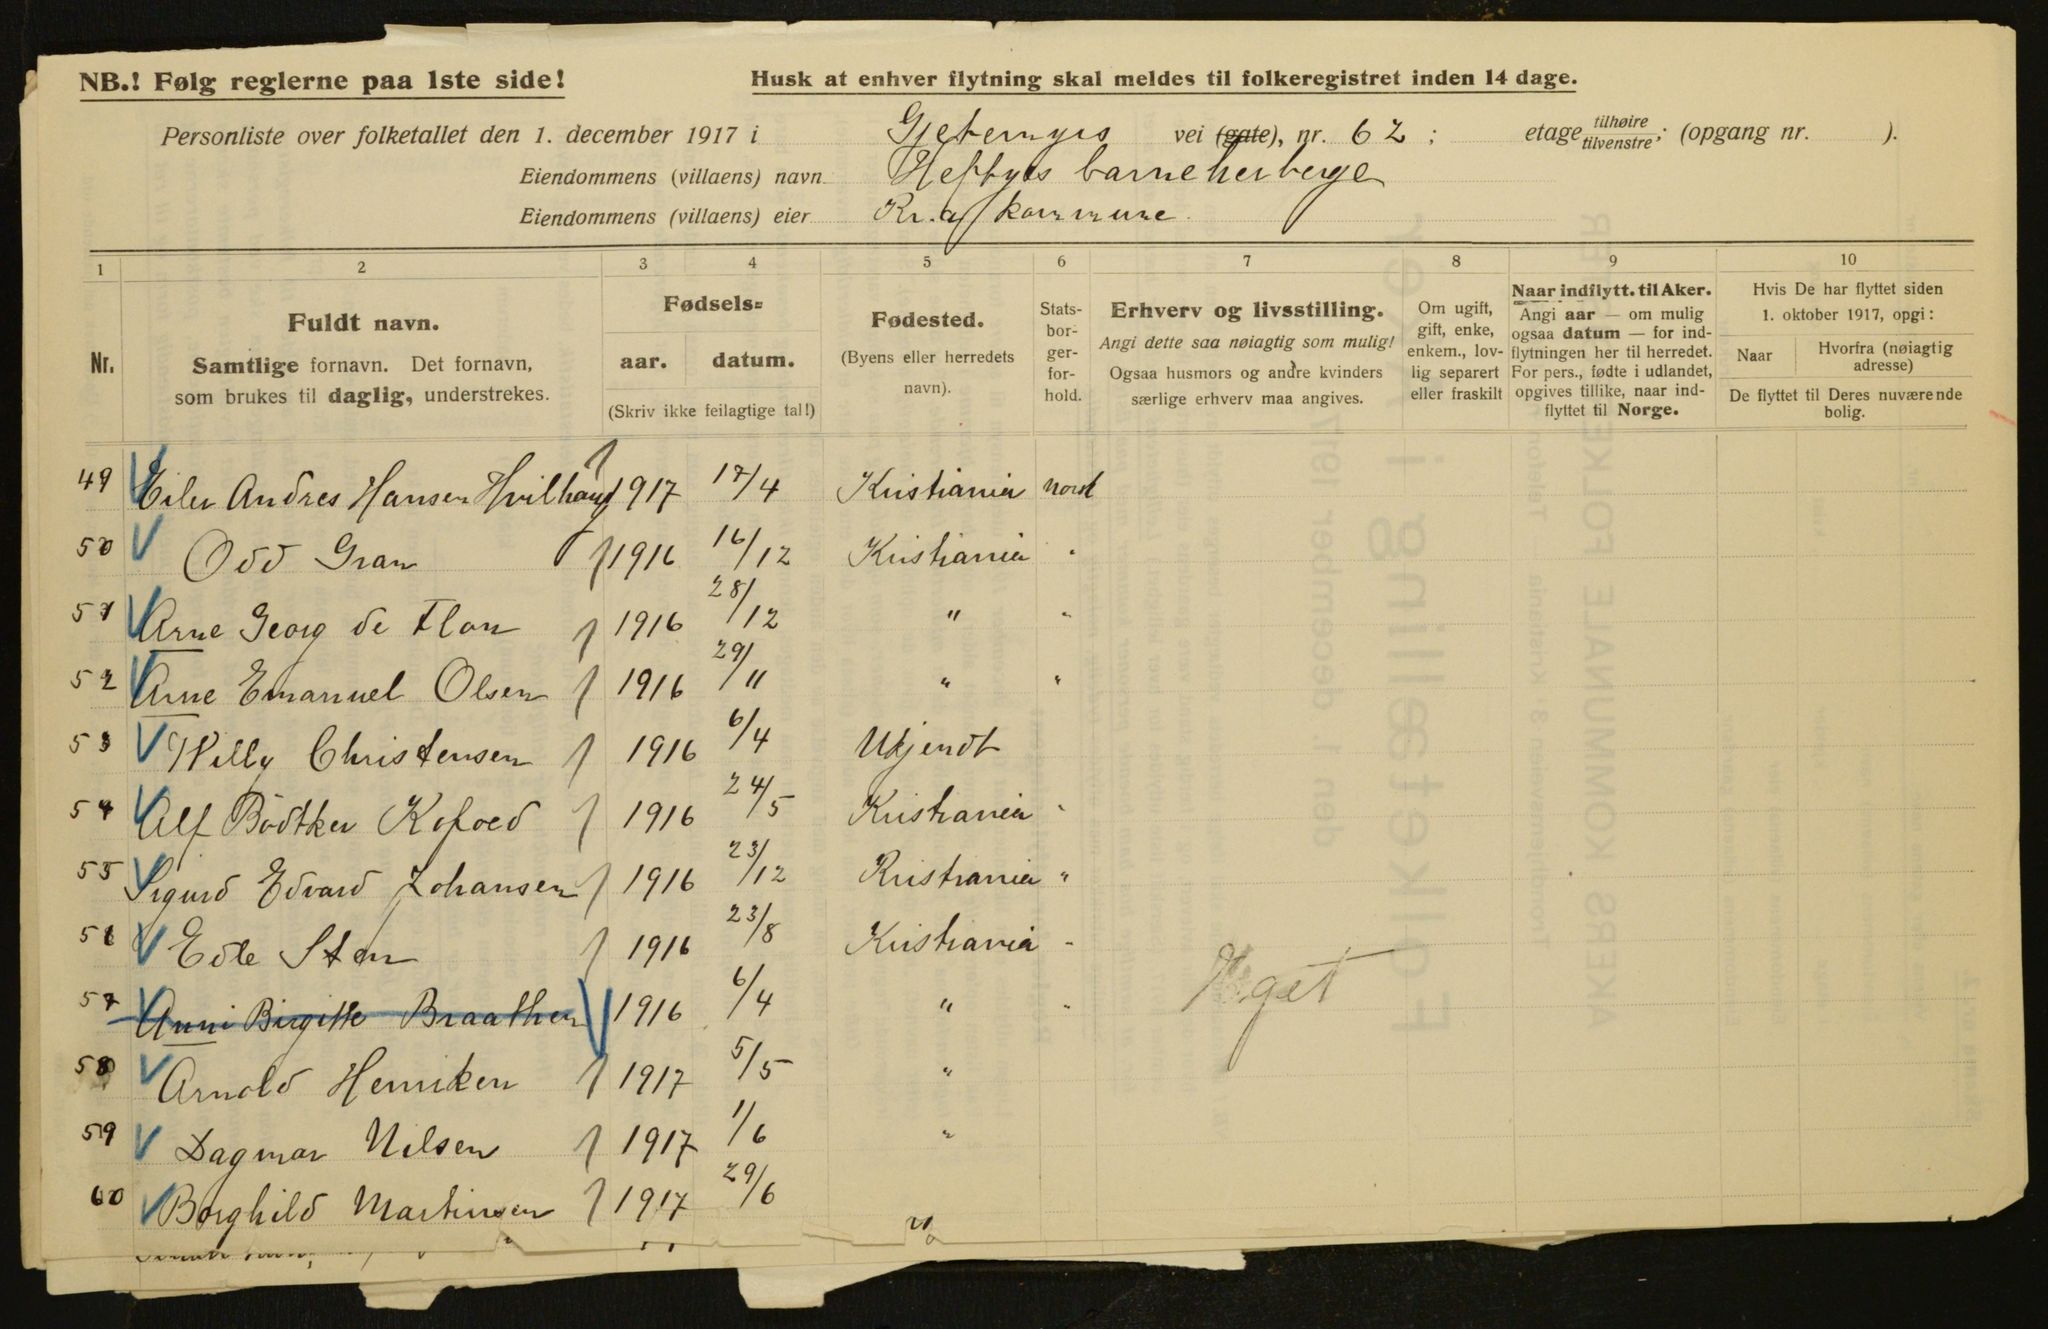 NB.! Følg reglerne paa 1ste side!
Husk at enhver flytning skal meldes til folkeregistret inden 14 dage.
Personliste over folketallet den 1. december 1917 i Gjetemyrs vei (gate), nr. 62; etage tilhøire/tilvenstre; (opgang nr. ).
Eiendommens (villaens) navn Heftyes barneherberge
Eiendommens (villaens) eier Kr.a kommune
1 2 3 4 5 6 7 8 9 10
Nr.
Fuldt navn.
Samtlige fornavn. Det fornavn,
som brukes til daglig, understrekes.
Fødsels-
aar. datum.
(Skriv ikke feilagtige tal!)
Fødested.
(Byens eller herredets
navn).
Stats-
bor-
ger-
for-
hold.
Erhverv og livsstilling.
Angi dette saa nøiagtig som mulig!
Ogsaa husmors og andre kvinders
særlige erhverv maa angives.
Om ugift,
gift, enke,
enkem., lov-
lig separert
eller fraskilt
Naar indflytt. til Aker.
Angi aar — om mulig
ogsaa datum — for ind-
flytningen her til herredet.
For pers., fødte i udlandet,
opgives tillike, naar ind-
flyttet til Norge.
Hvis De har flyttet siden
1. oktober 1917, opgi:
Naar
Hvorfra (nøiagtig
adresse)
De flyttet til Deres nuværende
bolig.
49 Eiler Andres Hansen Hvilhaug 1917 17/4 Kristiania norsk
50 Odd Gran 1916 16/12 Kristiania "
51 Arne Georg de Flon 1916 28/12 " "
52 Arne Emanuel Olsen 1916 29/11 " "
53 Willy Christensen 1916 6/4 Ukjendt
54 Alf Bödtker Kofoed 1916 24/5 Kristiania "
55 Sigurd Edvard Johansen 1916 23/12 Kristiania "
56 Edle Sten 1916 23/8 Kristiania "
57 Anni Birgitte Braathen 1916 6/4 " "
58 Arnold Henriken 1917 5/5 "
59 Dagmar Nilsen 1917 1/6 "
60 Borghild Martinsen 1917 29/6